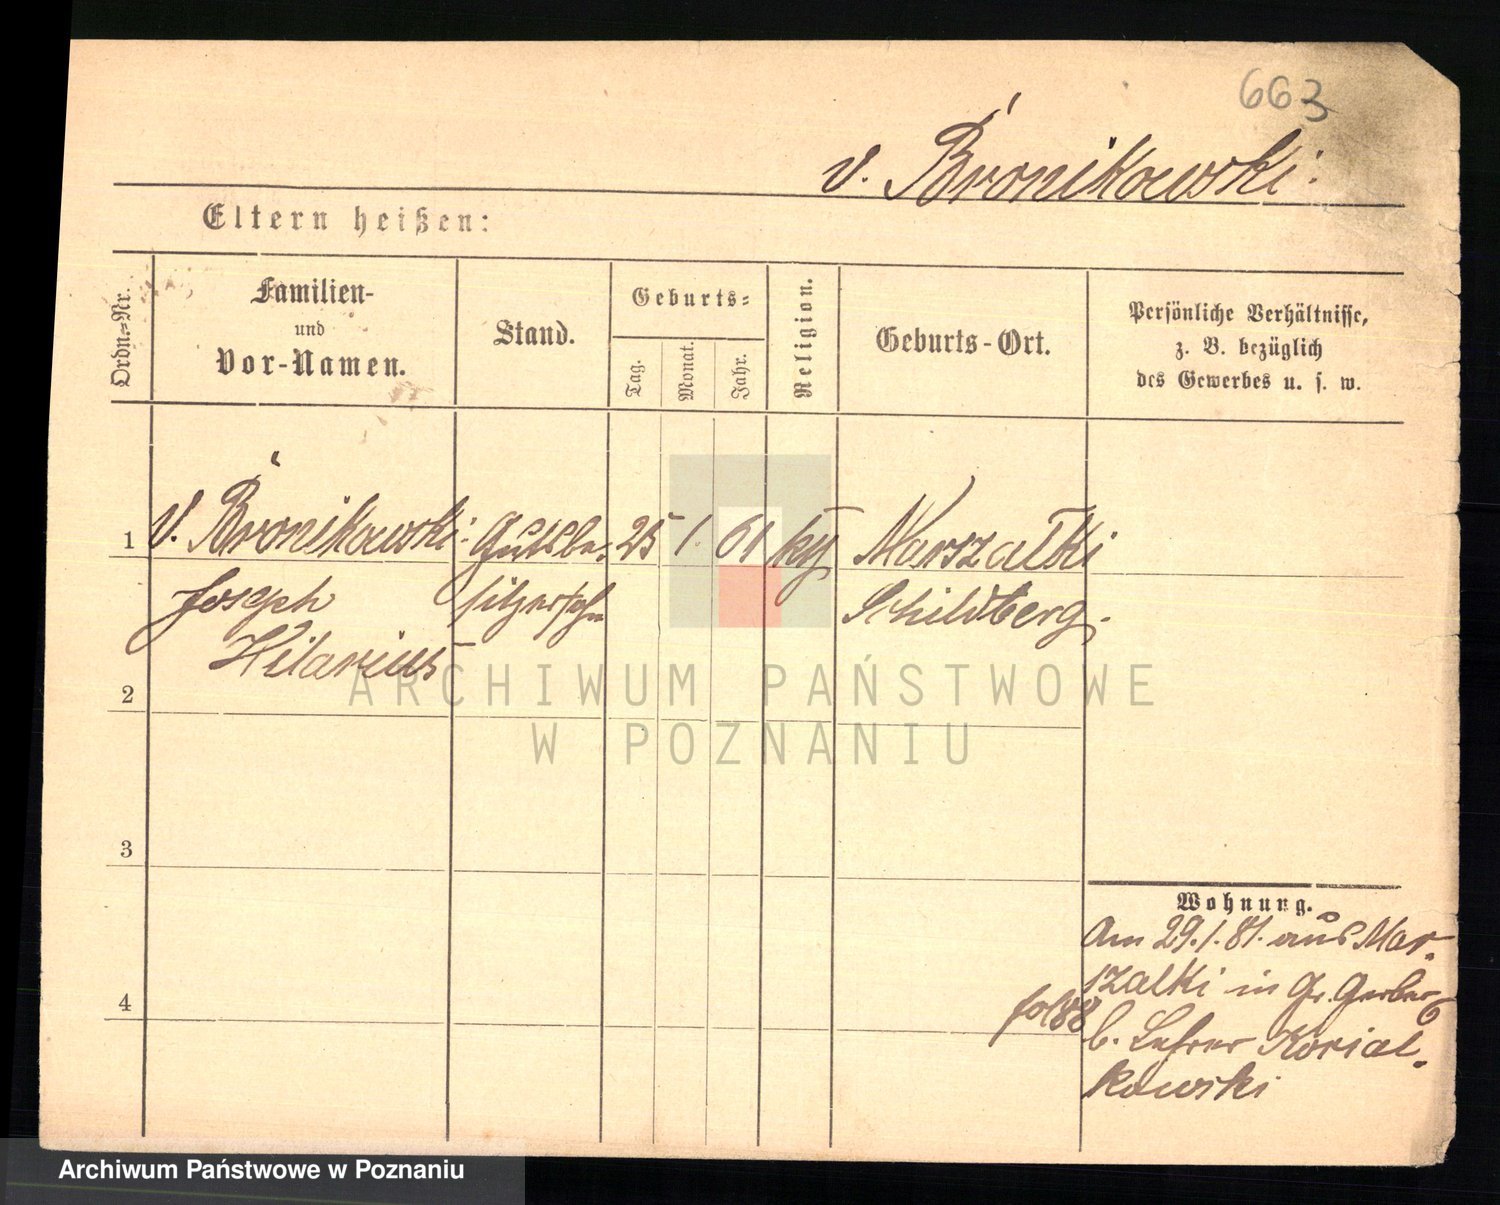 663
v. Bronikowski
Eltern heißen:
Ordn.-Nr.
Familien-
und
Vor-Namen.
Stand.
Geburts-
Tag.
Monat.
Jahr.
Religion.
Geburts-Ort.
Persönliche Verhältnisse,
z. B. bezüglich
des Gewerbes u. s. w.
1 v. Bronikowski Gutsbe- 25 1. 61 Marszalki
Joseph sitzersohn Schildberg.
Hilarius
2
3
4
Wohnung.
Am 29.1.81. aus Mar-
szalki in Gr. Gerber 6
fol 88 b. Lehrer
kowski
ARCHIWUM PAŃSTWOWE
W POZNANIU
Archiwum Państwowe w Poznaniu